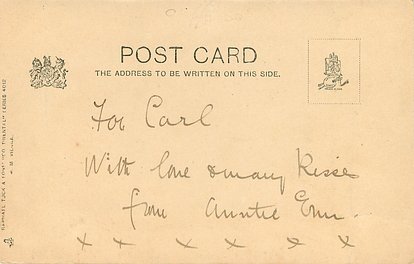 POST CARD
THE ADDRESS TO BE WRITTEN ON THIS SIDE.
For Carl
With love & many Kisses
from Auntie
x x x x x x
RAPHAEL TUCK & SONS